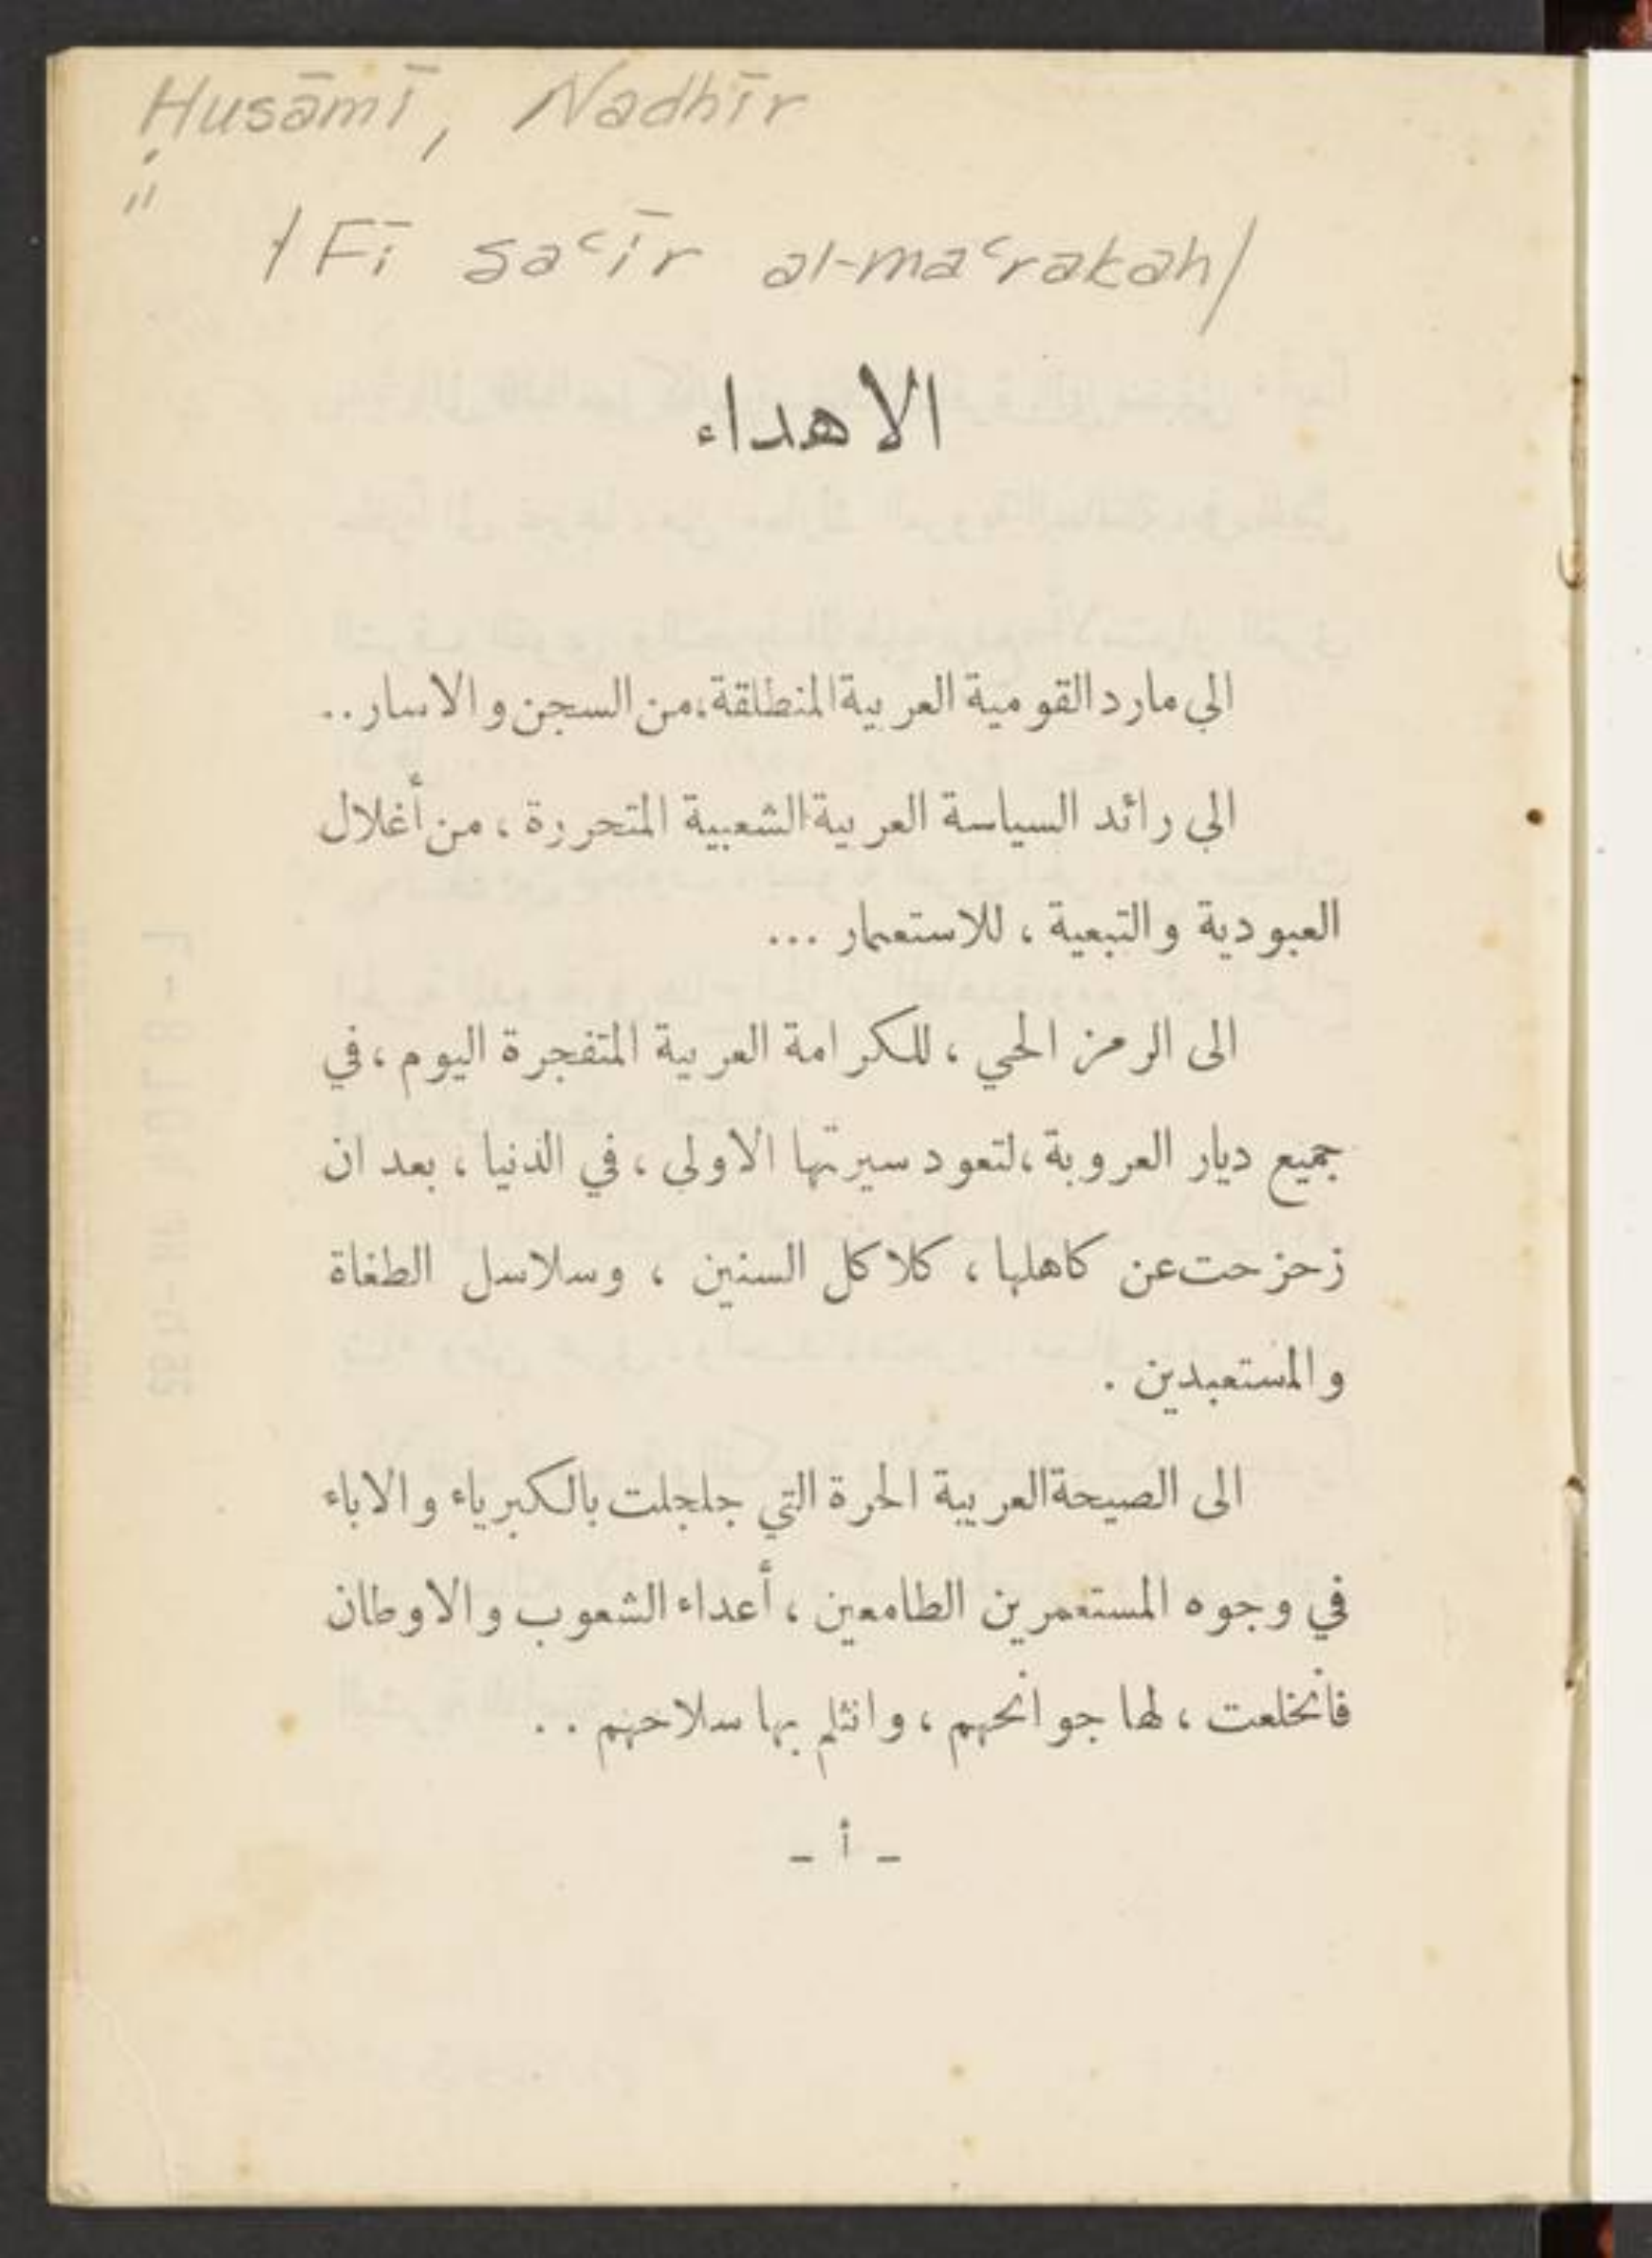 Ḥusāmī, Nadhīr
"
/Fī saʿīr al-maʿrakah/
الاهداء
الى مارد القومية العربية المنطلقة، من السجن والاسار..
الى رائد السياسة العربية الشعبية المتحررة ، من أغلال
العبودية والتبعية ، للاستعمار ...
الى الرمز الحي ، للكرامة العربية المتفجرة اليوم ، في
جميع ديار العروبة ، لتعود سيرتها الاولى ، في الدنيا ، بعد ان
زحزحت عن كاهلها ، كلاكل السنين ، وسلاسل الطغاة
والمستعبدين .
الى الصيحة العربية الحرة التي جلجلت بالكبرياء والاباء
في وجوه المستعمرين الطامعين ، أعداء الشعوب والاوطان
فانخلعت ، لها جوانحهم ، وانثلم بها سلاحهم ..
- أ -